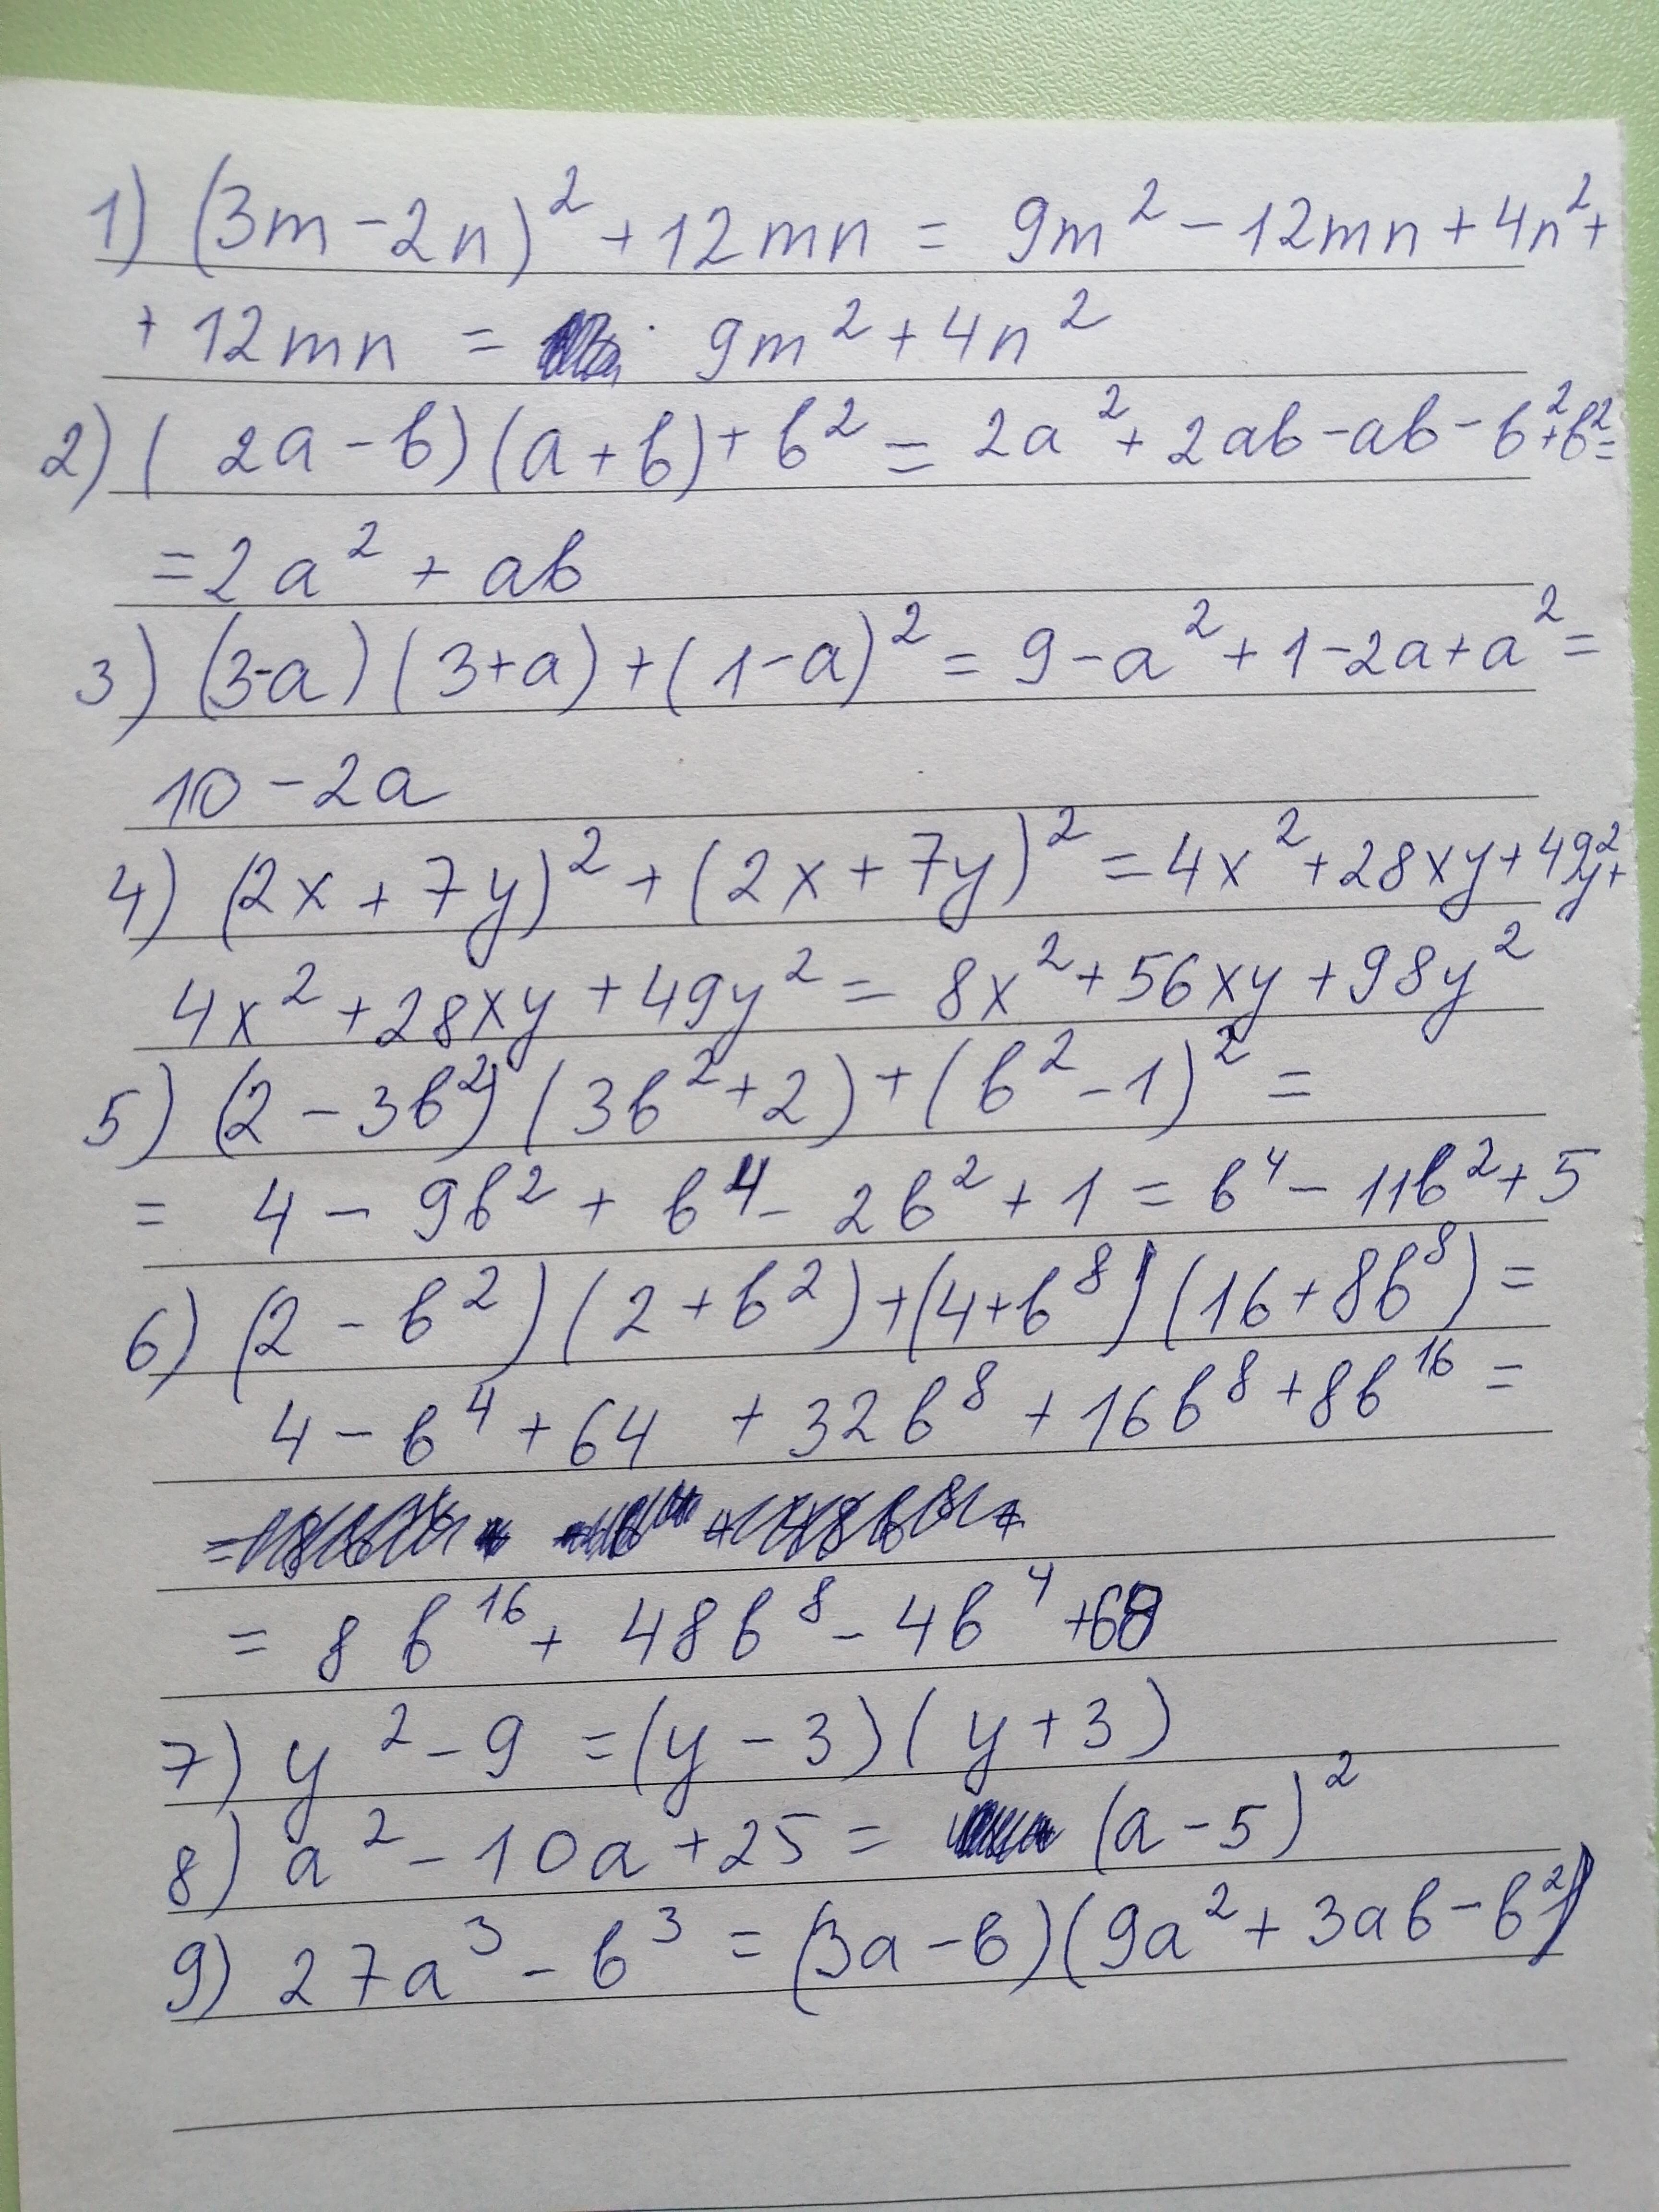 1) (3m - 2n)² + 12mn = 9m² - 12mn + 4n² +
+ 12mn = 9m² + 4n²
2) (2a - b)(a + b) + b² = 2a² + 2ab - ab - b² + b² =
= 2a² + ab
3) (3-a)(3+a) + (1-a)² = 9 - a² + 1 - 2a + a² =
10 - 2a
4) (2x + 7y)² + (2x + 7y)² = 4x² + 28xy + 49y² +
4x² + 28xy + 49y² = 8x² + 56xy + 98y²
5) (2 - 3b²)(3b² + 2) + (b² - 1)² =
= 4 - 9b² + b⁴ - 2b² + 1 = b⁴ - 11b² + 5
6) (2 - b²)(2 + b²) + (4 + b⁸)(16 + 8b⁸) =
4 - b⁴ + 64 + 32b⁸ + 16b⁸ + 8b¹⁶ =
= 8b¹⁶ + 48b⁸ - 4b⁴ + 68
7) y² - 9 = (y - 3)(y + 3)
8) a² - 10a + 25 = (a - 5)²
9) 27a³ - b³ = (3a - b)(9a² + 3ab - b²)